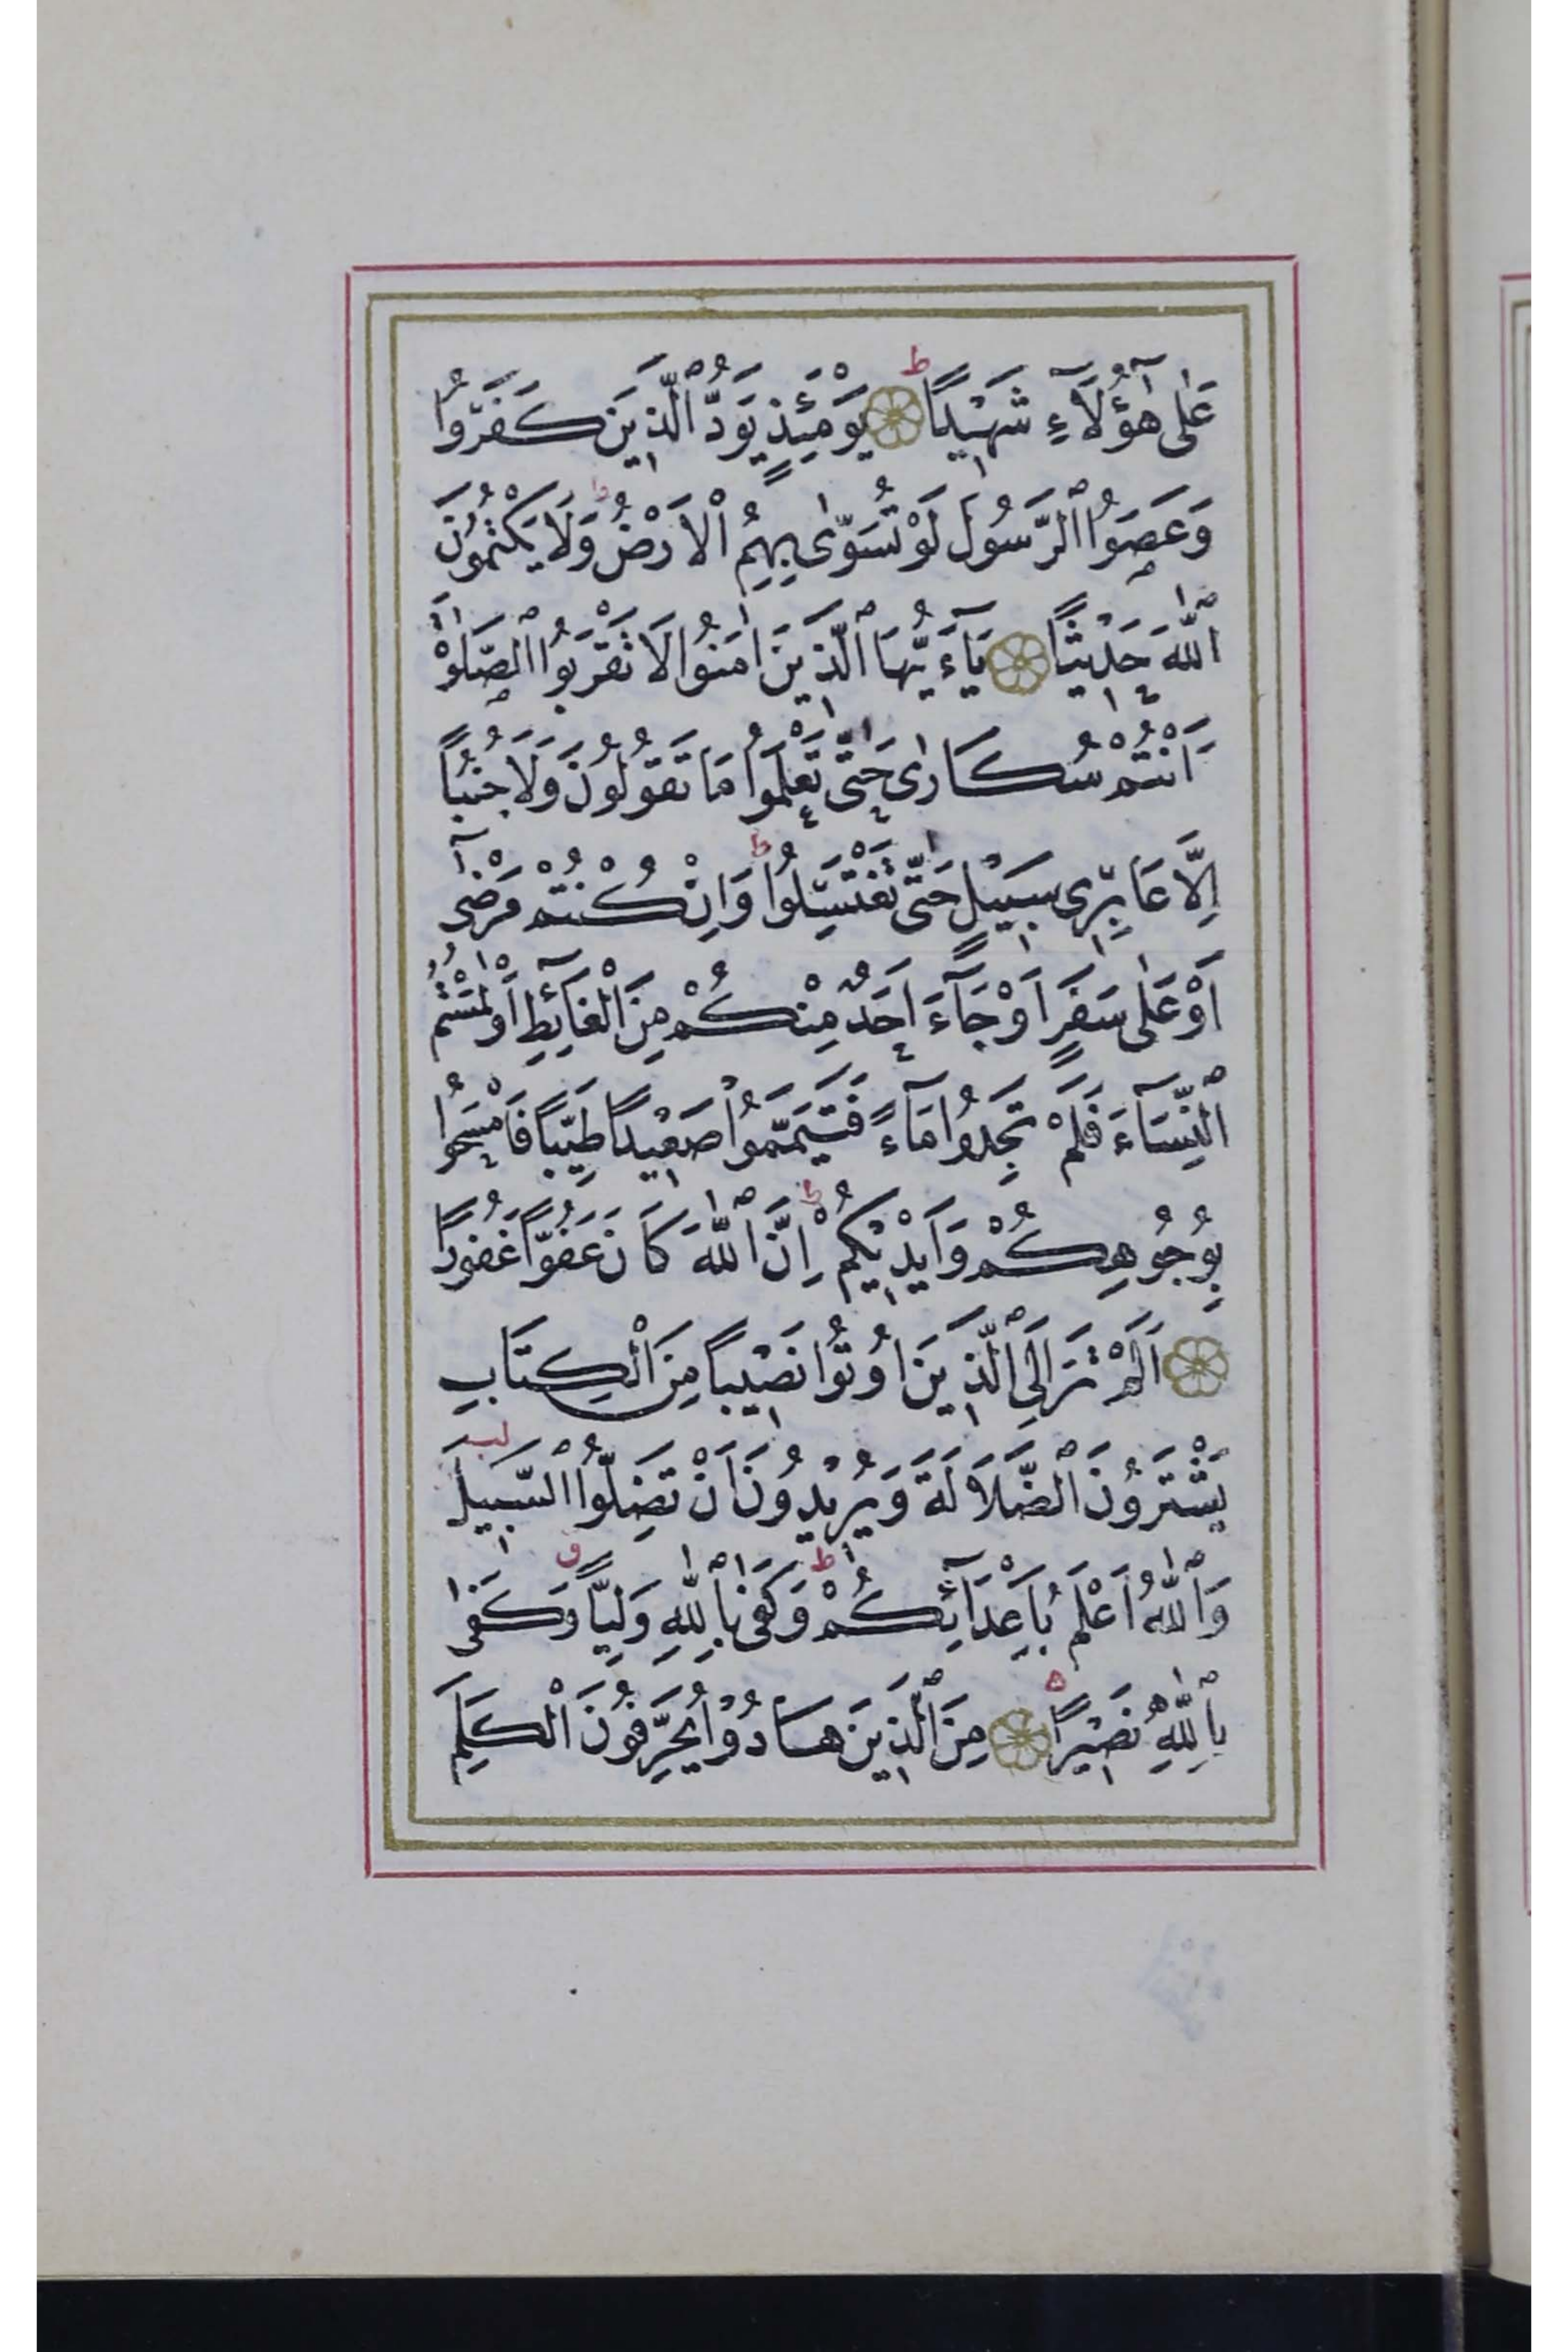 عَلٰى هٰٓؤُلَآءِ شَهِيْدًا ط يَوْمَئِذٍ يَوَدُّ ٱلَّذِينَ كَفَرُوا
وَعَصَوُا ٱلرَّسُولَ لَوْ تُسَوّٰى بِهِمُ ٱلْاَرْضُ ط وَلَا يَكْتُمُونَ
ٱللّٰهَ حَدِيْثًا يَآءَيُّهَا ٱلَّذِينَ اٰمَنُوا لَا تَقْرَبُوا ٱلصَّلٰوةَ
اَنْتُمْ سُكَارٰى حَتّٰى تَعْلَمُوا مَا تَقُولُونَ وَلَا جُنُبًا
اِلَّا عَابِرِى سَبِيْلٍ حَتّٰى تَغْتَسِلُوا ط وَاِنْ كُنْتُمْ مَرْضٰٓى
اَوْ عَلٰى سَفَرٍ اَوْ جَآءَ اَحَدٌ مِنْكُمْ مِنَ ٱلْغَآئِطِ اَوْ لٰمَسْتُمُ
ٱلنِّسَآءَ فَلَمْ تَجِدُوا مَآءً فَتَيَمَّمُوا صَعِيْدًا طَيِّبًا فَامْسَحُوا
بِوُجُوهِكُمْ وَاَيْدِيْكُمْ ط اِنَّ ٱللّٰهَ كَانَ عَفُوًّا غَفُورًا
اَلَمْ تَرَ اِلَى ٱلَّذِينَ اُوتُوا نَصِيْبًا مِنَ ٱلْكِتَابِ
يَشْتَرُونَ ٱلضَّلَالَةَ وَيُرِيْدُونَ اَنْ تَضِلُّوا ٱلسَّبِيلَ لب
وَٱللّٰهُ اَعْلَمُ بِاَعْدَآئِكُمْ ط وَكَفٰى بِٱللّٰهِ وَلِيًّا ق وَكَفٰى
بِٱللّٰهِ نَصِيْرًا ه مِنَ ٱلَّذِينَ هَادُوْا يُحَرِّفُونَ ٱلْكَلِمَ